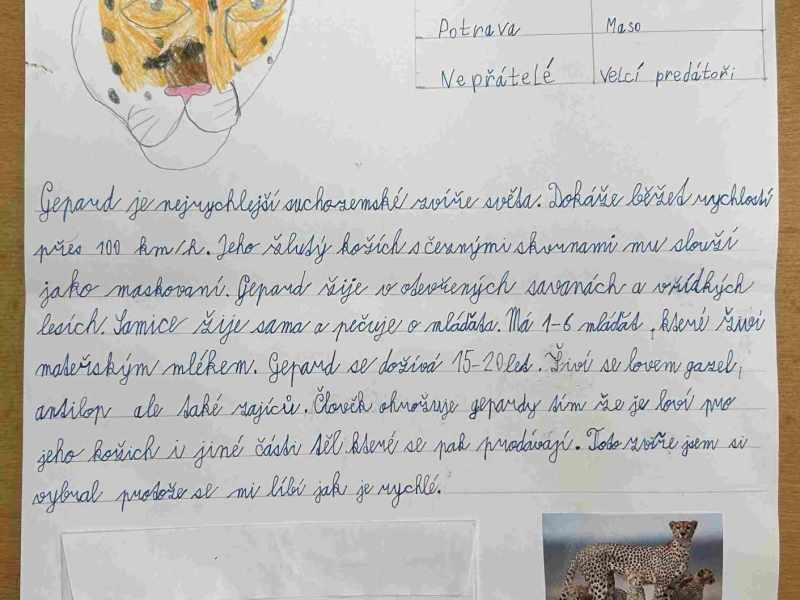 Potrava Maso
Nepřátelé Velcí predátoři
Gepard je nejrychlejší suchozemské zvíře světa. Dokáže běžet rychlostí
přes 100 km/h. Jeho žlutý kožich s černými skvrnami mu slouží
jako maskovaní. Gepard žije v otevřených savanách a v řídkých
lesích. Samice žije sama a pečuje o mláďata. Má 1-6 mláďat, které živí
mateřským mlékem. Gepard se dožívá 15-20 let. Živí se lovem gazel,
antilop ale také zajíců. Člověk ohrožuje gepardy tím že je loví pro
jeho kožich i jiné části těl které se pak prodávají. Toto zvíře jsem si
vybral protože se mi líbí jak je rychlé.